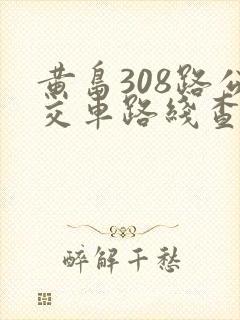 黄島308路公
交車路綫查
醉解千愁